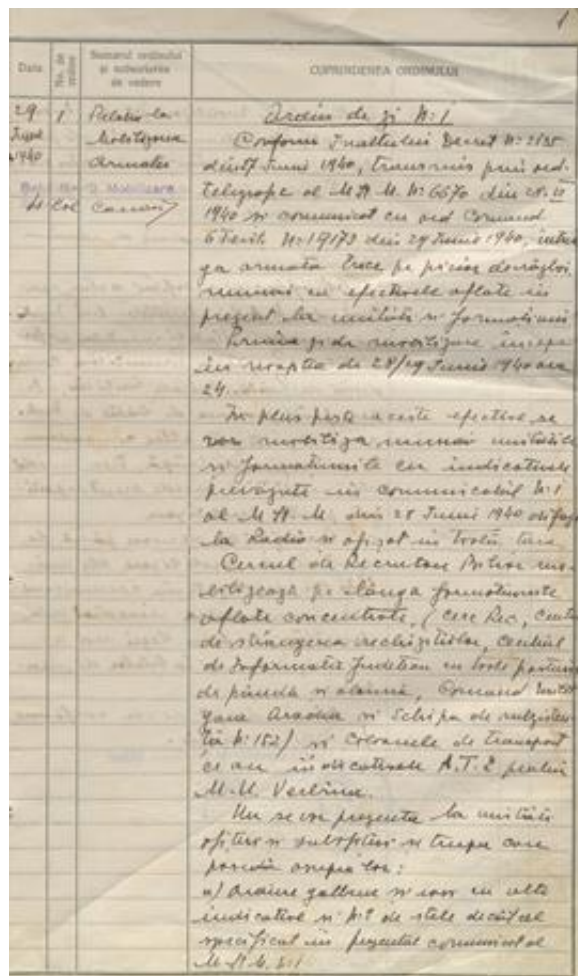 1
Data
No. de ordine
Sumarul ordinului
și autoritatea
de vedere
CUPRINDEREA ORDINULUI
29
Iunie
1940
1
Relativ la
Mobilizarea
Armatei
Ordin de zi N:1
Conform Inaltului Decret N:
din 27 Iunie 1940, transmis prin ord.
telegrafic al M.St.M. N: 6670 din 28.VI
1940 si comunicat cu ord Comand.
6 Terit. N: 19173 din 29 Iunie 1940, intrea
ga armata trece pe picior de războiu
numai cu efectivele aflate in
prezent la unitati si formatiuni
Prima zi de mobilizare incepe
in noaptea de 28/29 Iunie 1940 ora
24.
In plus peste aceste efective se
vor mobiliza numai unitatile
si formatiunile cu indicativele
prevazute in comunicatul N:1
al M.St.M. din 28 Iunie 1940 difuzat
la Radio si afisat in toata tara
Cercul de Recrutare
pe langa formatiunile
aflate concentrate, (cerc Rec, centrul
de strangerea rechizitiilor, centrul
de Informatii Judetean cu toate posturile
de pânda si alarma, Comand.
si Echipa de subzisten
ta N: 152) si coloanele de transport
ce au indicativele A.T.2 pentru
Nu se vor prezenta la unitati
ofiteri si subofiteri si trupa care
poseda asupra lor:
a) Ordine galbene si rosii cu alte
indicative si N: de stele decât cel
specificat in prezentul comunicat al
M.St.M. N:1